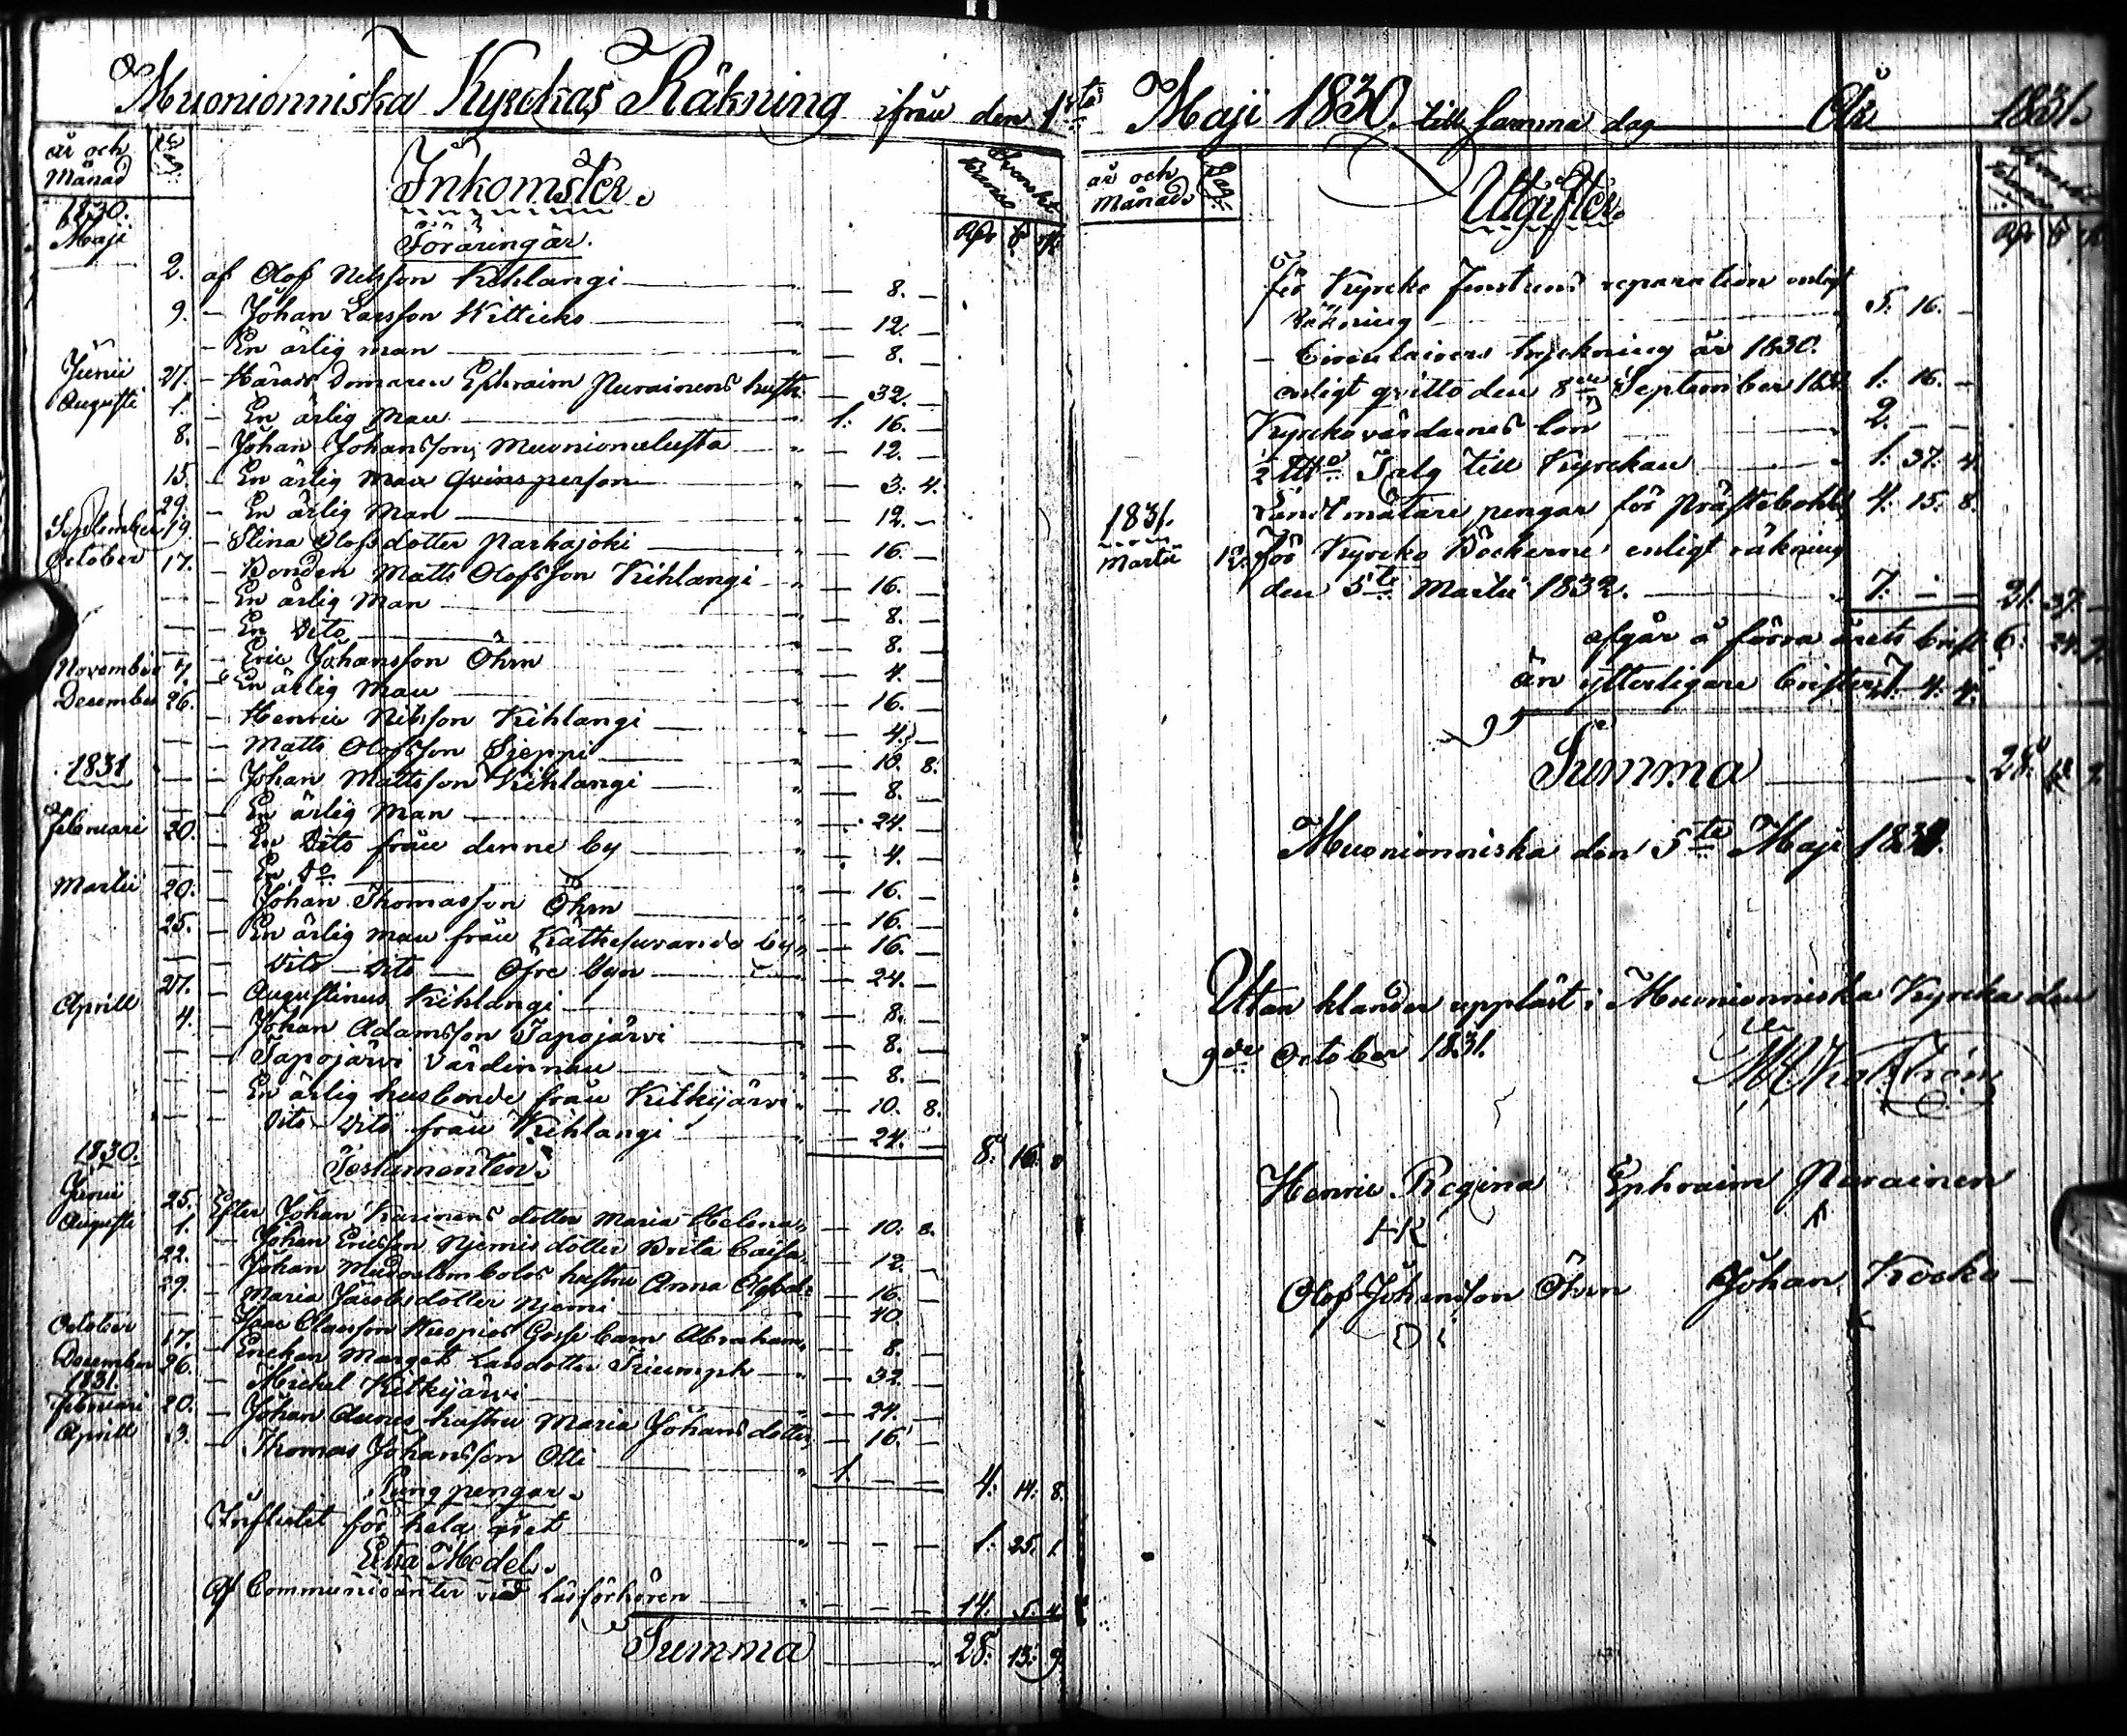 Muonionniska Kyrckas Räkning ifrån den 1sta Maji 1830. till samma dag År 1831.
år och Månad Dag Inkomster. Svenska Banco
1830. Föräringar. Rdr ß rst
Maji
2. af Olof Nilsson Kihlangi " — 8. —
9. — Johan Larsson Kittieks " — 12. —
— En ärlig man " — 8. —
Junii 27. — Härads Domaren Ephraim Purainens hustr. — 32. —
Augusti 1. — En ärlig Man " 1: 16. —
8. — Johan Johansson, Muonionalusta " — 12. —
15. — En ärlig Man Qvinsperson " — 3: 4.
29. — En ärlig Man " — 12. —
September 19. — Stina Olofsdotter Parkajoki " — 16. —
October 17. — Bonden Matts Olofsson Kihlangi " — 16. —
— — En ärlig Man " — 8. —
— — En Dito " — 8. —
— — Eric Johansson Öhrn " — 4. —
November 7. — En ärlig Man " — 16. —
December 26. — Henric Nilsson Kihlangi " — 4. —
— — Matts Olofsson Sieppi " — 10. 8.
1831 — — Johan Mattsson Kihlangi " — 8. —
— — En ärlig Man " — 24. —
Februari 20. — En Dito från denne by " — 4. —
— — En Do " — 16. —
Martii 20. — Johan Thomasson Öhrn " — 16. —
25. — En ärlig man från Kätkesuvando by " — 16. —
— — Dito — Dito — Öfre byn " — 24. —
27. — Augustinus Kihlangi " — 8. —
Aprill 4. — Johan Adamsson Tapojärvi " — 8. —
— — Tapojärvi Värdinnan " — 8. —
— — En ärlig husbonde från Kitkijärvi " — 10. 8.
— — Dito — Dito från Kihlangi " — 24. — 8: 16: 8
1830. Testamenten.
Junii 25. Efter Johan Karinens dotter Maria Helena " — 10: 8.
Augusti 1. — Johan Ericsson Njemis dotter Brita Caisa " — 12. —
22. — Johan Muodoslombolos hustru Anna — 16. —
29. — Maria Jacobsdotter Njemi " — 40. —
October 17. — Isac Classon Kuopios Gosse barn Abraham " — 8. —
December 26. — Enckan Marget Larsdotter Triumph " — 32. —
1831. — Michel Kitkijärvi " — 24. —
Februari 20. — Johan hustru Maria Johansdotter " — 16. —
Aprill 3. — Thomas Johansson Otti " 1. — — 4: 14: 8.
Pung pengar.
Influtit för hela året " — — — 1: 25. 1.
Etra Medel.
Af Communicanter vid Läsförhören " — — — 14. 5. 4.
Summa " 28: 13: 9.
år och Månad Dag: Utgifter. Svenska Banco
Rdr ß rst
för Kyrcko fenstrens reparation enligt
Räkning " 5. 16. —
— Circulairers tryckning år 1830.
enligt qvitto den 8de September 1830 1: 16. —
Kyrckovärdarnes lön " 2. — —
½ Talg till Kyrckan " 1: 37. 4.
Landtmätare pengar för Prästebohlet 4. 15. 8.
1831. Martii 12. för Kyrcko Böckerne enligt räkning
den 5te Martii 1832. " 7. — — 21: 37. —
afgår å förra årets brist 6: 24. 9.
än ytterligare brister 7. 4. 4.
Summa 28: 13. 9.
Muonionniska den 5te Maji 1831.
Utan klander uppläst i Muonionniska Kyrcka den
9de October 1831.
Henric Regina Ephraim Purainen
HR
Olof Johansson Öhrn Johan Kocko